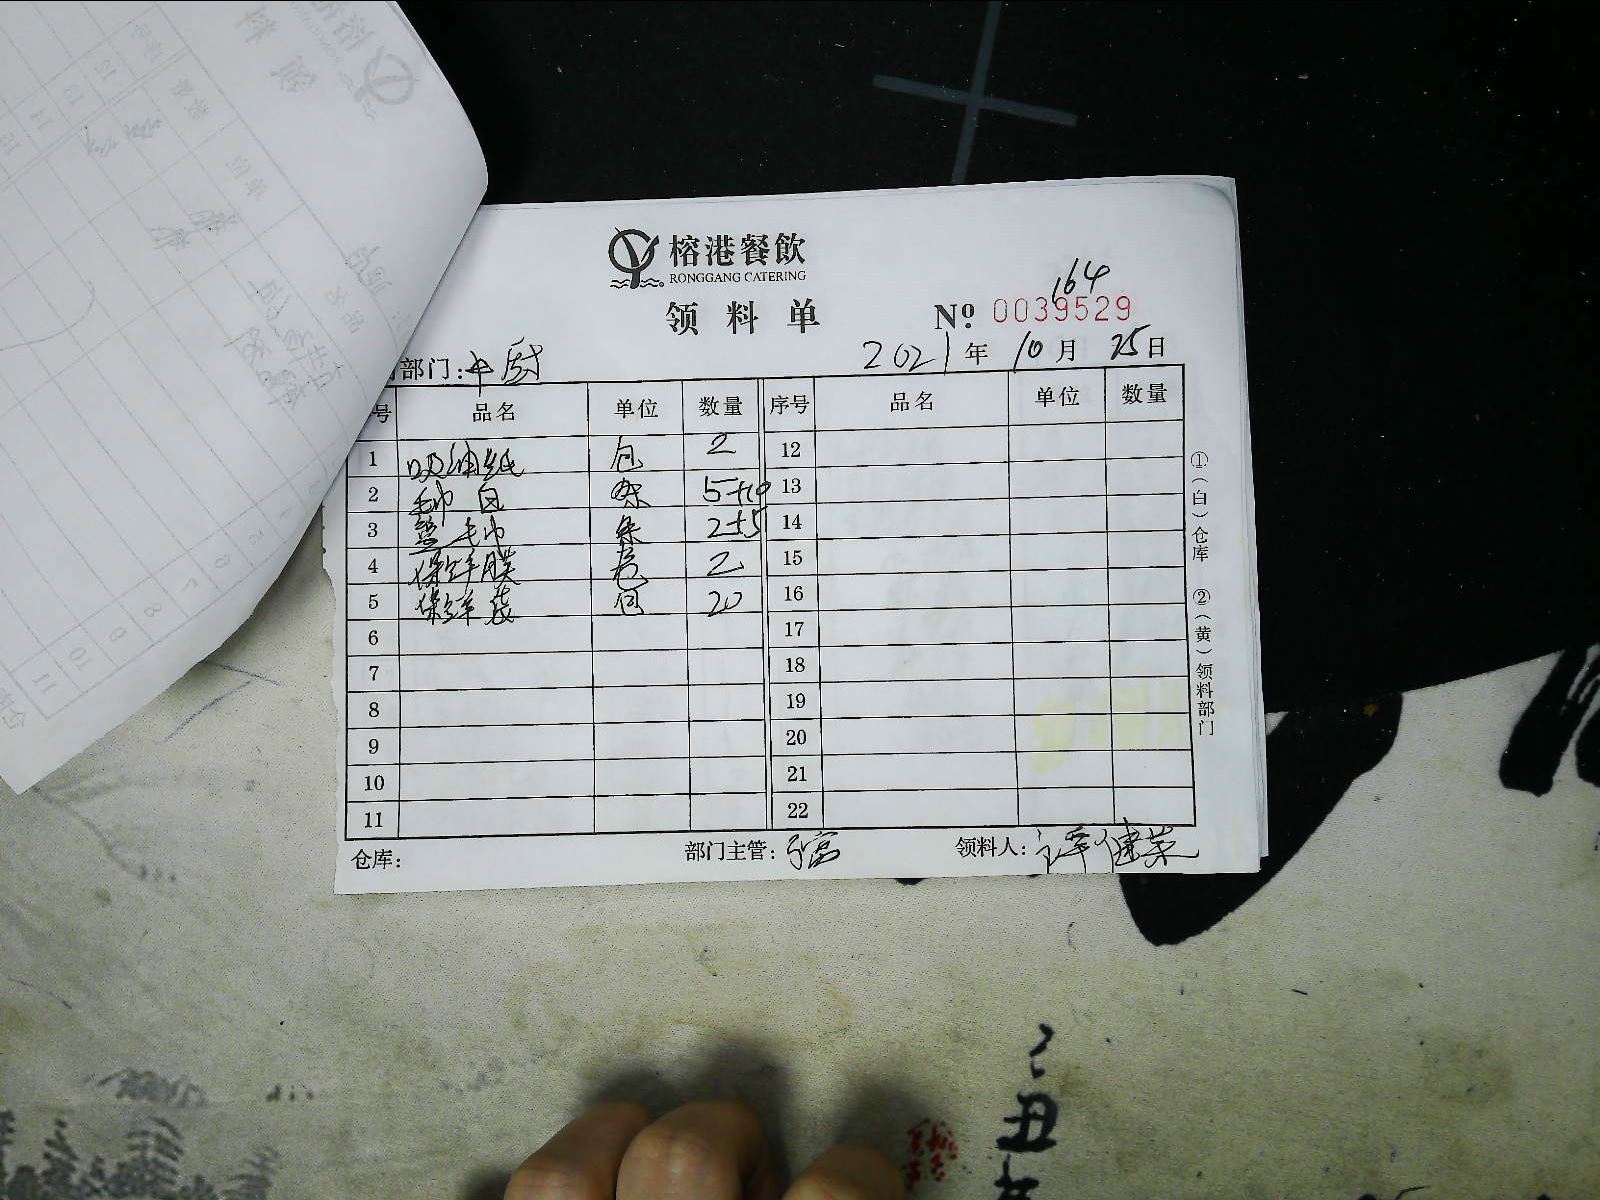 榕港餐飲
RONGGANG CATERING
164
领料单
No. 0039529
部门:中厨
2021年10月25日
号 品名 单位 数量 序号 品名 单位 数量
1 吸油纸 包 2 12
2 毛巾 白 条 5+10 13
3 蓝毛巾 条 2+5 14
4 保鲜膜 卷 2 15
5 保鲜袋 包 20 16
6 17
7 18
8 19
9 20
10 21
11 22
①(白)仓库 ②(黄)领料部门
仓库:
部门主管:
领料人:谭健荣
丑